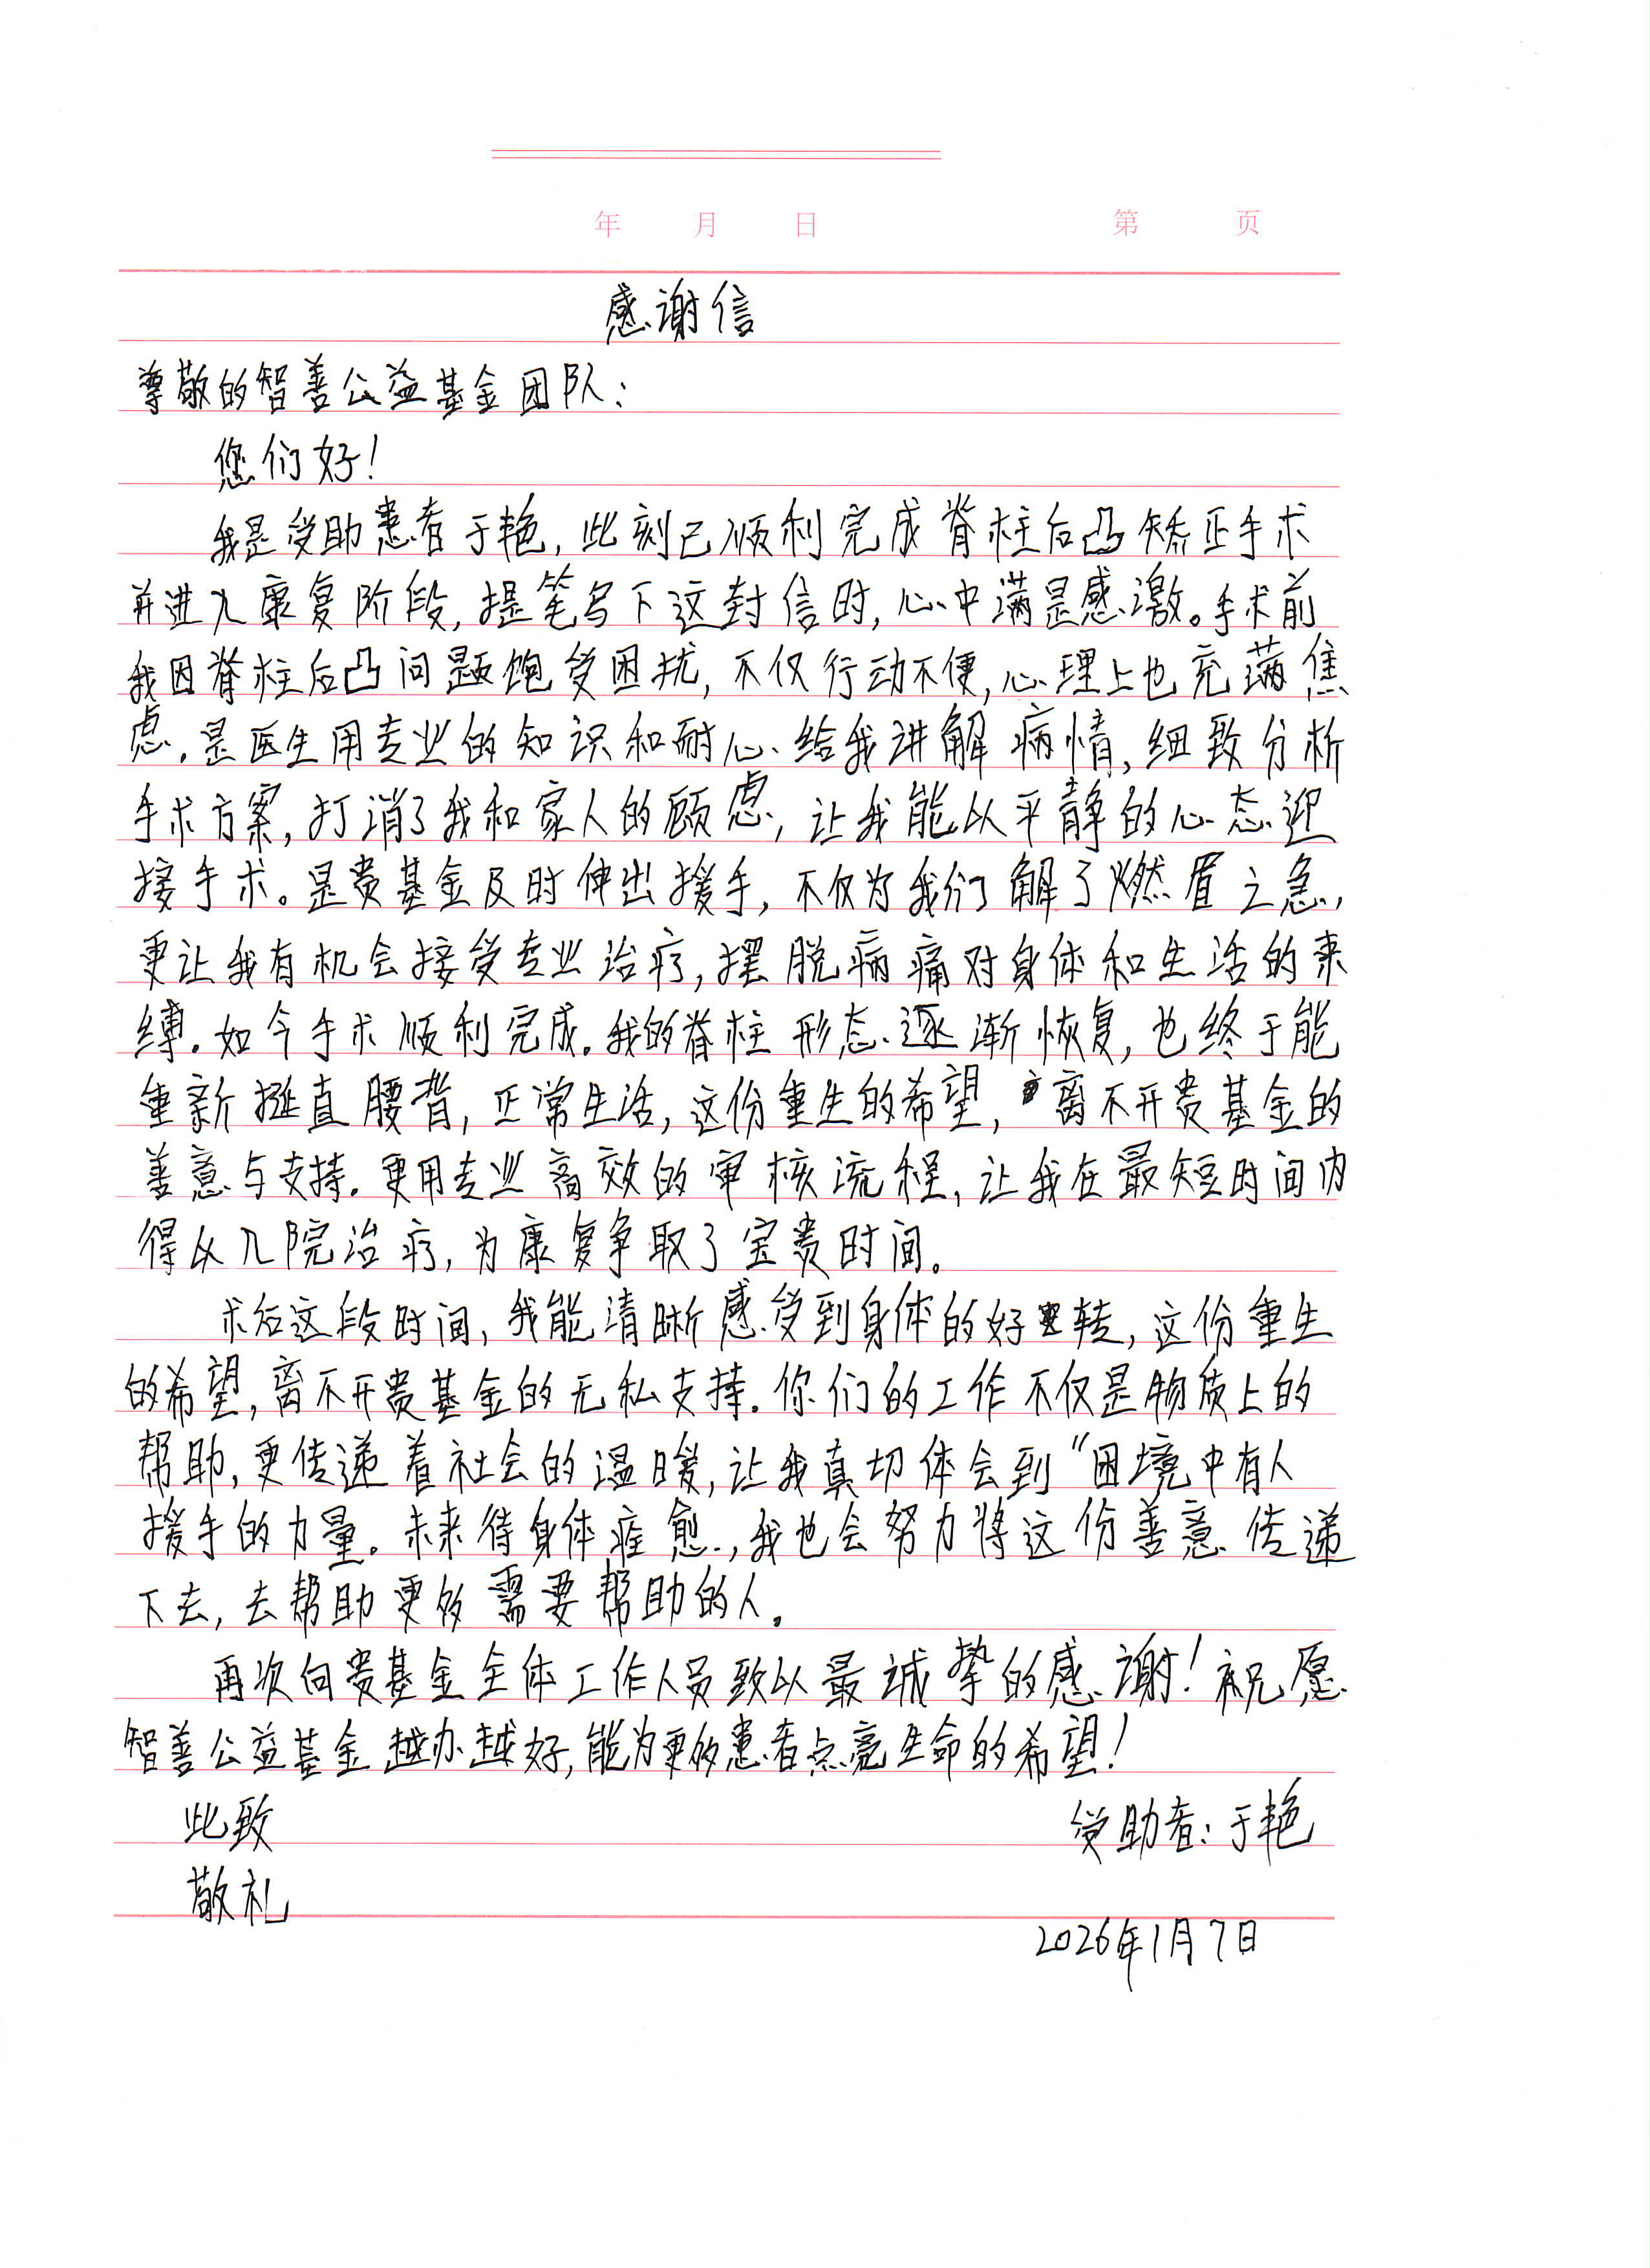 年 月 日 第 页
感谢信
尊敬的智善公益基金团队：
您们好！
我是受助患者于艳，此刻已顺利完成脊柱后凸矫正手术
并进入康复阶段，提笔写下这封信时，心中满是感激。手术前
我因脊柱后凸问题饱受困扰，不仅行动不便，心理上也充满焦
虑。是医生用专业的知识和耐心给我讲解病情，细致分析
手术方案，打消了我和家人的顾虑，让我能以平静的心态迎
接手术。是贵基金及时伸出援手，不仅为我们解了燃眉之急，
更让我有机会接受专业治疗，摆脱病痛对身体和生活的束
缚。如今手术顺利完成。我的脊柱形态逐渐恢复，也终于能
重新挺直腰背，正常生活，这份重生的希望，离不开贵基金的
善意与支持。更用专业高效的审核流程，让我在最短时间内
得以入院治疗，为康复争取了宝贵时间。
术后这段时间，我能清晰感受到身体的好转，这份重生
的希望，离不开贵基金的无私支持。你们的工作不仅是物质上的
帮助，更传递着社会的温暖，让我真切体会到“困境中有人
援手的力量。未来待身体痊愈，我也会努力将这份善意传递
下去，去帮助更多需要帮助的人。
再次向贵基金全体工作人员致以最诚挚的感谢！祝愿
智善公益基金越办越好，能为更多患者点亮生命的希望！
此致 受助者：于艳
敬礼
2026年1月7日